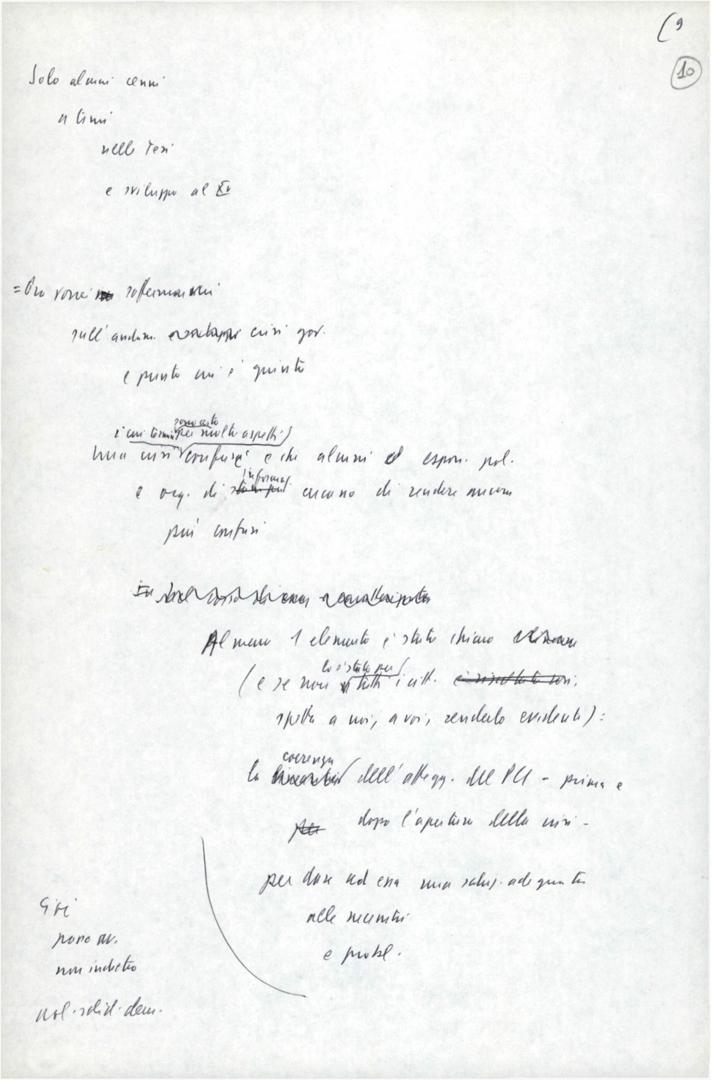 (9
10
Solo alcuni cenni
a temi
nelle Tesi
e sviluppo al XV
= Ora vorrei soffermarmi
sull'andam. crisi gov.
e punto cui è giunta
sono certo
i cui termini per molti aspetti)
Una crisi confusa e che alcuni espon. pol.
informaz.
e org. di cercano di rendere ancora
più confusi
Almeno 1 elemento è stato chiaro
lo è stato per
(e se non tutti i citt.
spetta a noi, a voi, renderlo evidente):
coerenza
la dell'attegg. del PCI - prima e
dopo l'apertura della crisi -
per dare ad essa una soluz. adeguata
alle necessità
e probl.
Sisi
passo av.
non indietro
pol. solid. dem.